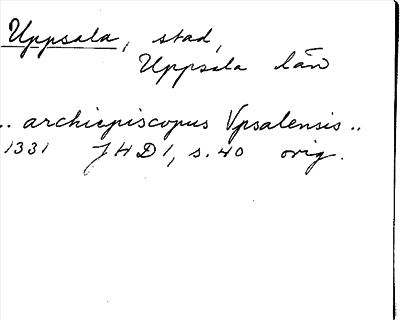 Uppsala, stad,
Uppsala län
.. archiepiscopus Vpsalensis ..
1331 JHD 1, s. 40 orig.